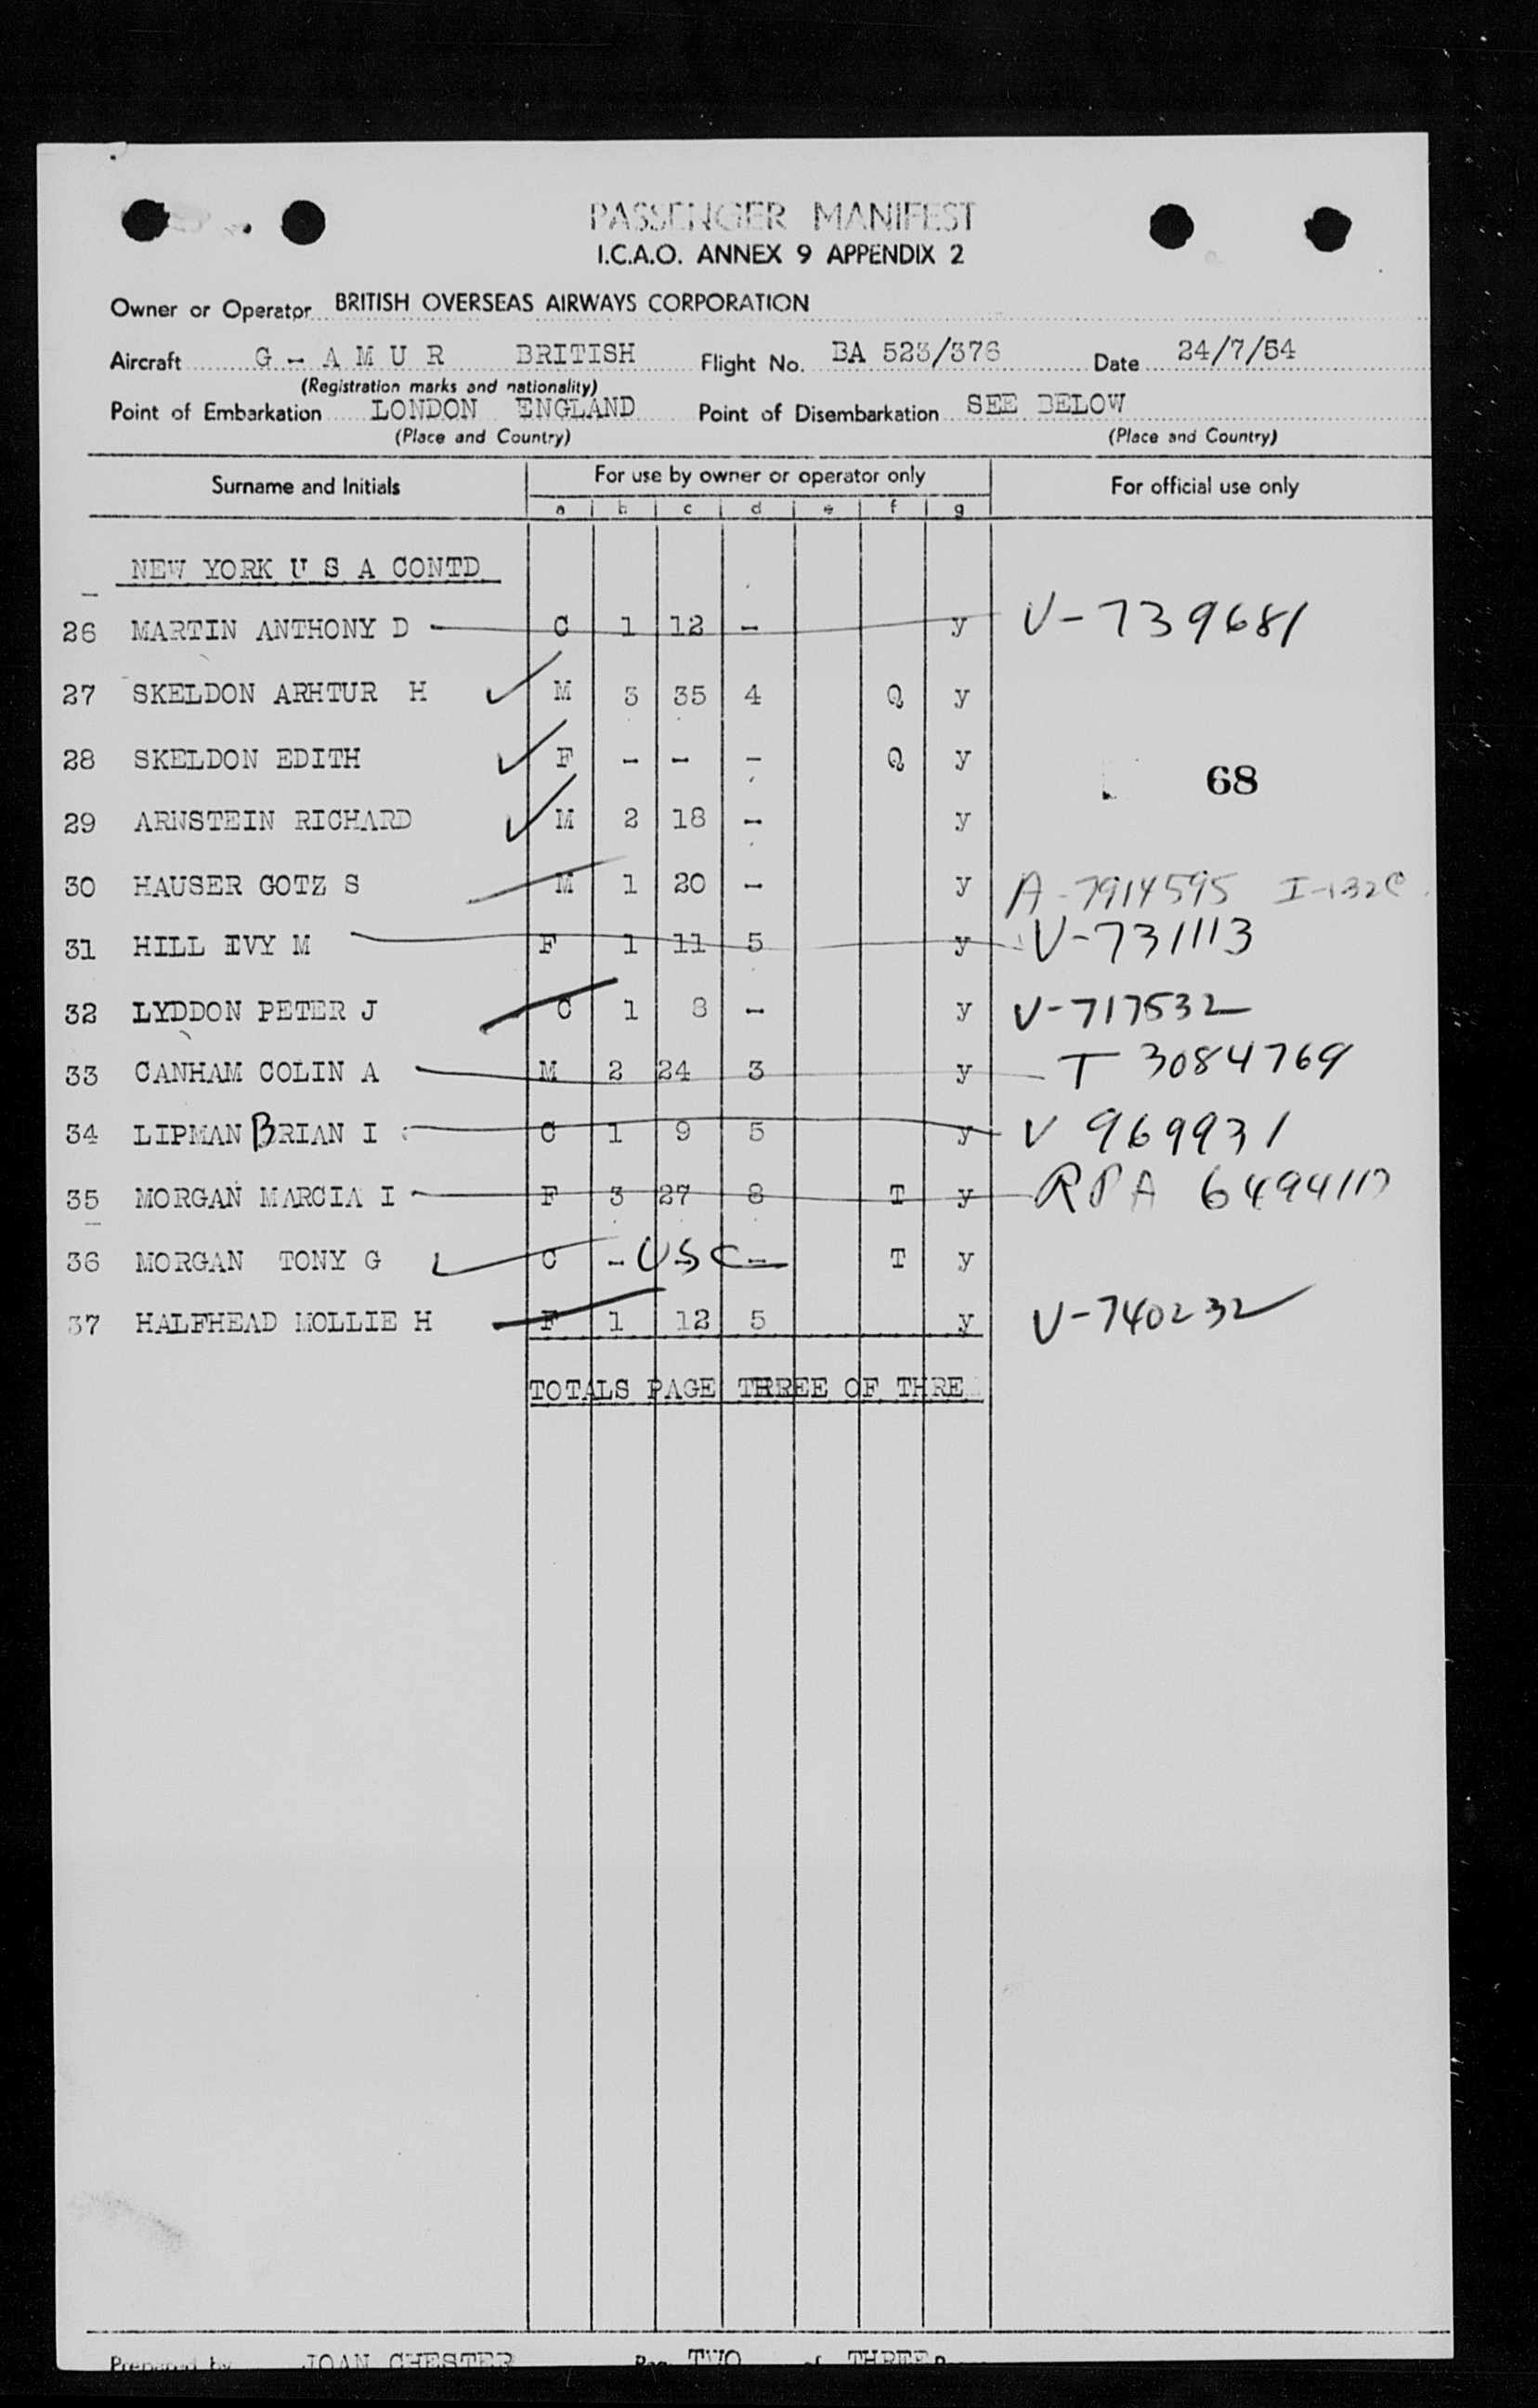 PASSENGER MANIFEST
I.C.A.O. ANNEX 9 APPENDIX 2
Owner or Operator BRITISH OVERSEAS AIRWAYS CORPORATION
Aircraft G - A M U R BRITISH Flight No. BA 523/376 Date 24/7/54
(Registration marks and nationality)
Point of Embarkation LONDON ENGLAND Point of Disembarkation SEE BELOW
(Place and Country) (Place and Country)
Surname and Initials For use by owner or operator only For official use only
a b c d e f g
NEW YORK U S A CONTD
26 MARTIN ANTHONY D C 1 12 - y V-739681
27 SKELDON ARHTUR H M 3 35 4 Q y
28 SKELDON EDITH F - - - Q y
68
29 ARNSTEIN RICHARD M 2 18 - y
30 HAUSER GOTZ S M 1 20 - y A-7914595 I-132C
31 HILL IVY M F 1 11 5 y V-731113
32 LYDDON PETER J C 1 8 - y V-717532
33 CANHAM COLIN A M 2 24 3 y T 3084769
34 LIPMAN BRIAN I C 1 9 5 y V 969931
35 MORGAN MARCIA I F 3 27 8 T y RPA
36 MORGAN TONY G C - USC - T y
37 HALFHEAD MOLLIE H F 1 12 5 y V-740232
TOTALS PAGE THREE OF THRE
Prepared by JOAN CHESTER Page TWO of THREE